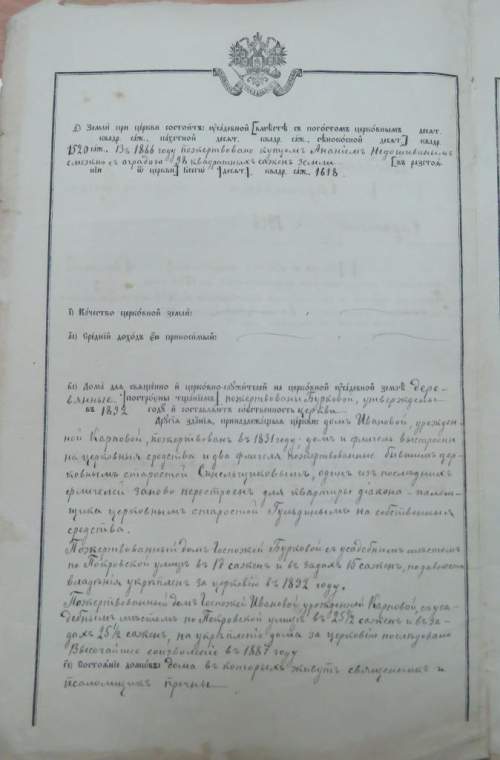 і) Землѝ при церкви состоитъ: усадебной [вмѣстѣ съ погостомъ церковнымъ десят.
квадр. саж., пахотной десят. квадр. саж., сѣнокосной десят.] квадр.
1520 саж., въ 1866 году пожертвовано купцомъ Ананіемъ
смежно съ оградою 98 квадратныхъ сажен земли [въ разстоя-
ніи ѿ церкви] всего [десят.] квадр. саж., 1618.
Качество церковной земли:
Средній доходъ ею приносимый:
Дома для священно и церковно-служителей на церковной усадебной землѣ дере-
вянные [построены тщаніемъ] пожертвованы Бурковой, утверждены
въ 1892 году и составляютъ собственность церкви
Другія зданія, принадлежащія церкви: домъ Ивановой, урожден-
ной Карповой, пожертвованъ въ году домъ и флигель выстроены
на церковныя средства и два флигеля пожертвованные бывшимъ цер-
ковнымъ старостой Синельщиковымъ, одинъ изъ последнихъ
флигелей заново перестроенъ для квартиры діакона-псалом-
щика церковнымъ старостой на собственныя
средства.
Пожертвованный домъ Госпожей Бурковой съ усадебнымъ мѣстомъ
по Покровской улицѣ въ 17 сажен и въ задахъ 15 сажен,
владѣнія укрѣплен за церковію въ 1892 году.
Пожертвованный домъ Госпожей Ивановой урожденной Карповой, съ уса-
дебнымъ мѣстомъ по Покровской улицѣ въ 25½ сажен и въ за-
дахъ 25½ сажен, на укрѣпленіе дома за церковію последовало
Высочайшее соизволеніе въ 1887 году
Состояніе домовъ: дома въ которыхъ живутъ священникъ и
псаломщикъ прочны